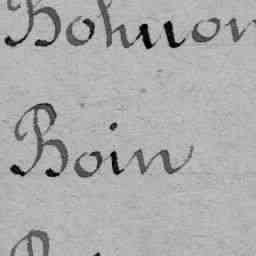 Bohuon
Boin